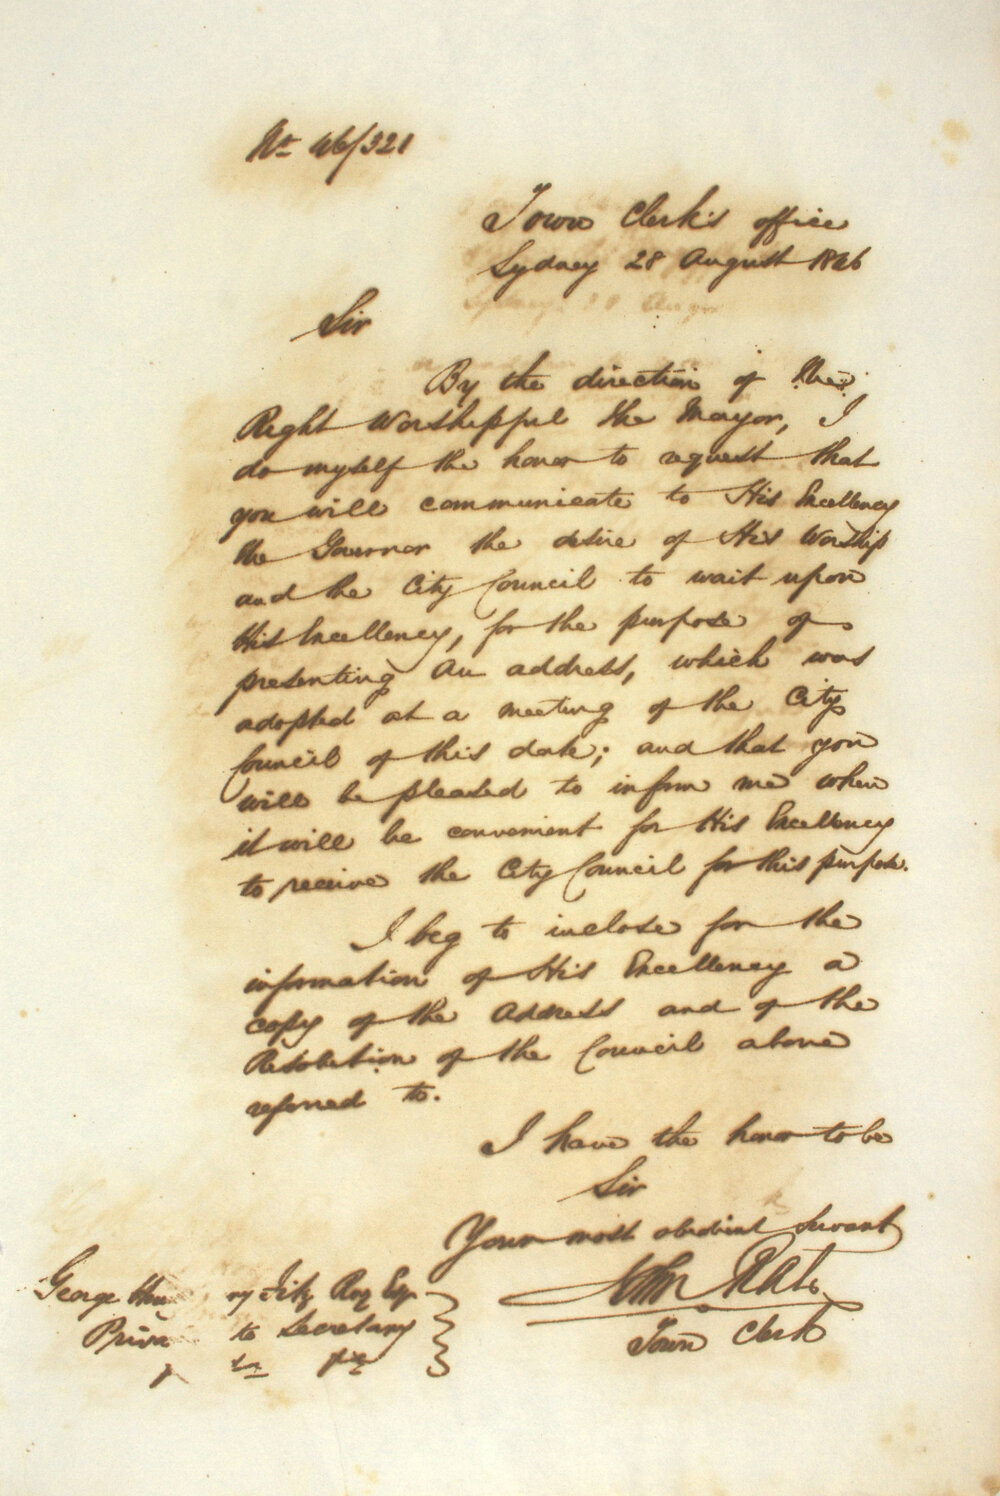 No 46/321
Town Clerk's office
Sydney 28 August 1846
Sir
By the direction of the
Right Worshipful the Mayor, I
do myself the honor to request that
you will communicate to His Excellency
the Governor the desire of His Worship
and the City Council to wait upon
His Excellency, for the purpose of
presenting an address, which was
adopted at a meeting of the City
Council of this date; and that you
will be pleased to inform me when
it will be convenient for His Excellency
to receive the City Council for this purpose.
I beg to inclose for the
information of His Excellency a
copy of the Address and of the
Resolution of the Council above
referred to.
I have the honor to be
Sir
Your most obedient Servant
John
Town Clerk
George Hen ry Fitz Roy Esqr
Priva te Secretary